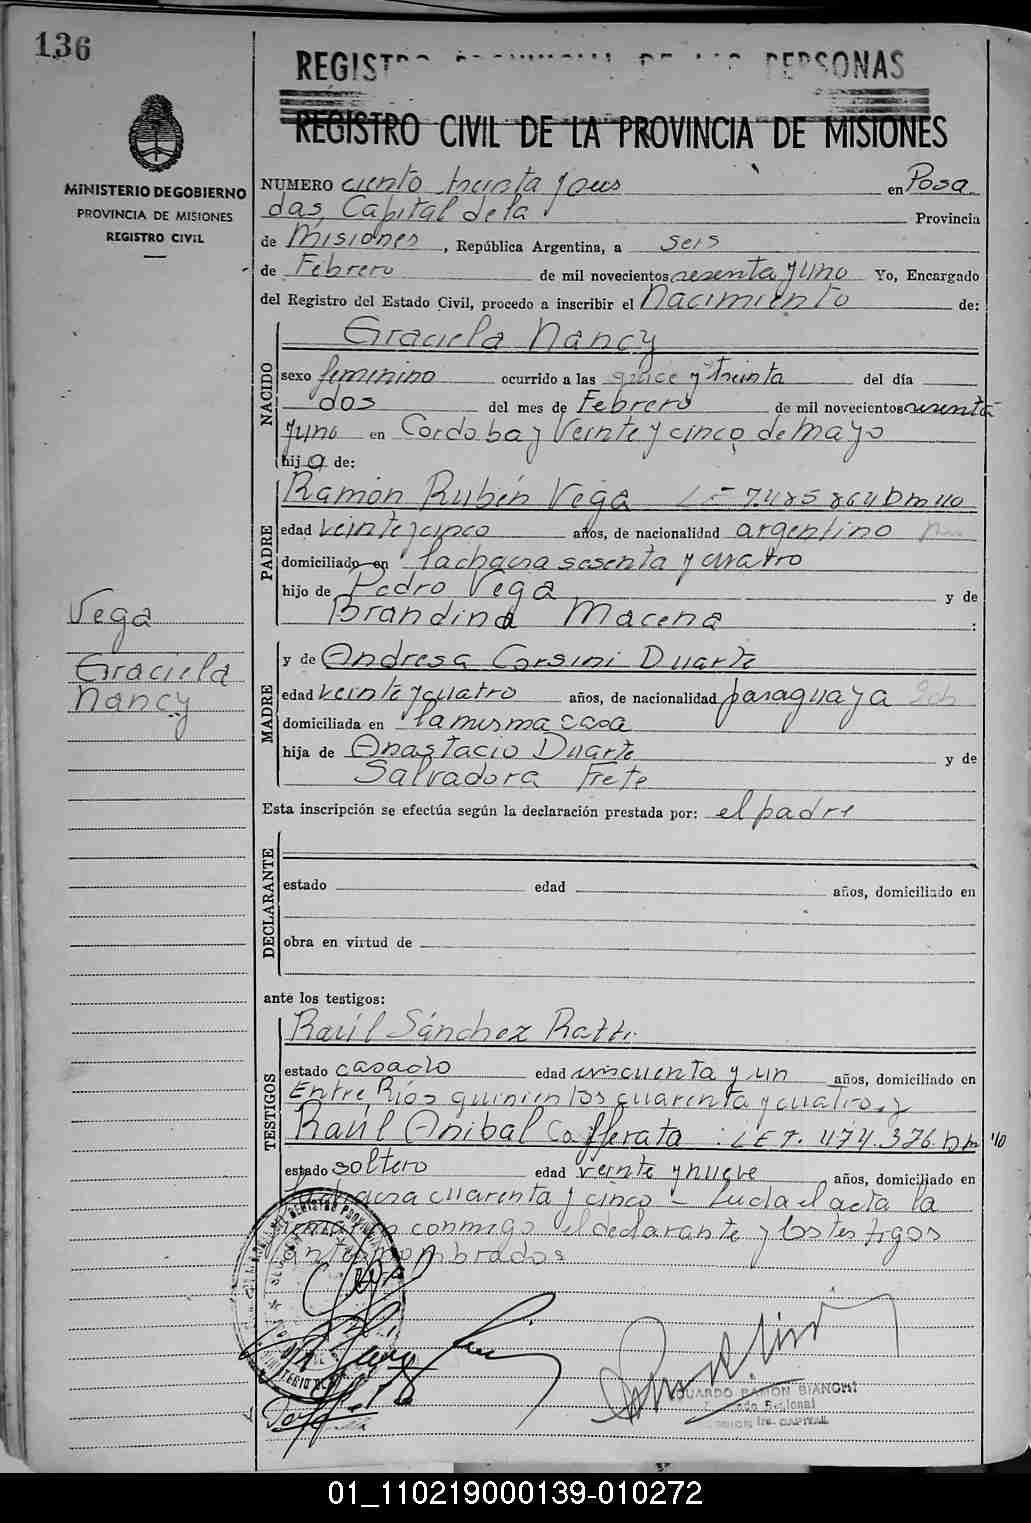 136
REGISTRO PROVINCIAL DE LAS PERSONAS
REGISTRO CIVIL DE LA PROVINCIA DE MISIONES
MINISTERIO DE GOBIERNO
PROVINCIA DE MISIONES
REGISTRO CIVIL
NUMERO ciento treinta y seis en Posa
das, Capital de la Provincia
de Misiones, República Argentina, a seis
de Febrero de mil novecientos sesenta y uno Yo, Encargado
del Registro del Estado Civil, procedo a inscribir el Nacimiento de:
NACIDO
Graciela Nancy
sexo femenino ocurrido a las quince y treinta del día
dos del mes de Febrero de mil novecientos sesenta
y uno en Córdoba y Veinte y cinco de Mayo
hija de:
PADRE
Ramón Rubén Vega LE 7.485.864 D m 40
edad veinte y cinco años, de nacionalidad argentino
domiciliado en la chacra sesenta y cuatro
hijo de Pedro Vega y de
Brandina Macena :
Vega
Graciela
Nancy
MADRE
y de Andresa Corsini Duarte
edad veinte y cuatro años, de nacionalidad paraguaya
domiciliada en la misma casa
hija de Anastacio Duarte y de
Salvadora Frete
Esta inscripción se efectúa según la declaración prestada por: el padre
DECLARANTE
estado edad años, domiciliado en
obra en virtud de
ante los testigos:
TESTIGOS
Raúl Sánchez Ratti
estado casado edad cincuenta y un años, domiciliado en
Entre Ríos quinientos cuarenta y cuatro, y
Raúl Anibal Cafferata : L E 7.474.376 D m 40
estado soltero edad veinte y nueve años, domiciliado en
la chacra cuarenta y cinco - Leída el acta la
firman conmigo el declarante y los testigos
antes nombrados
EDUARDO RAMON BIANCHI
CAPITAL
01_110219000139-010272